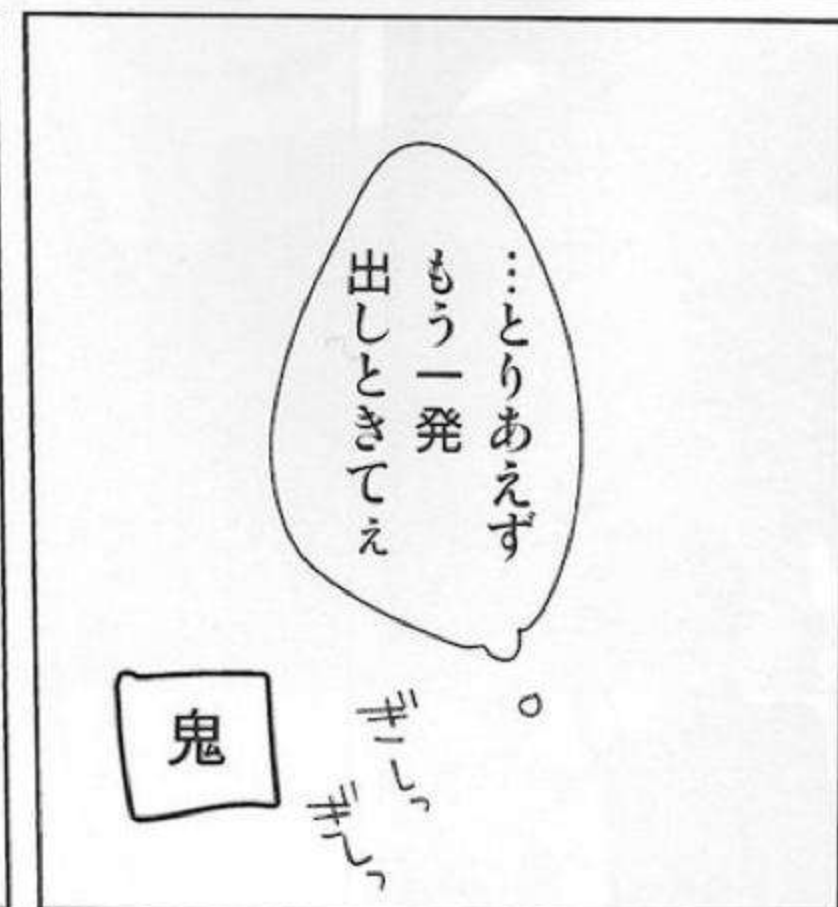 …とりあえず
もう一発
出しときてぇ
ぎしっ
ぎしっ
鬼